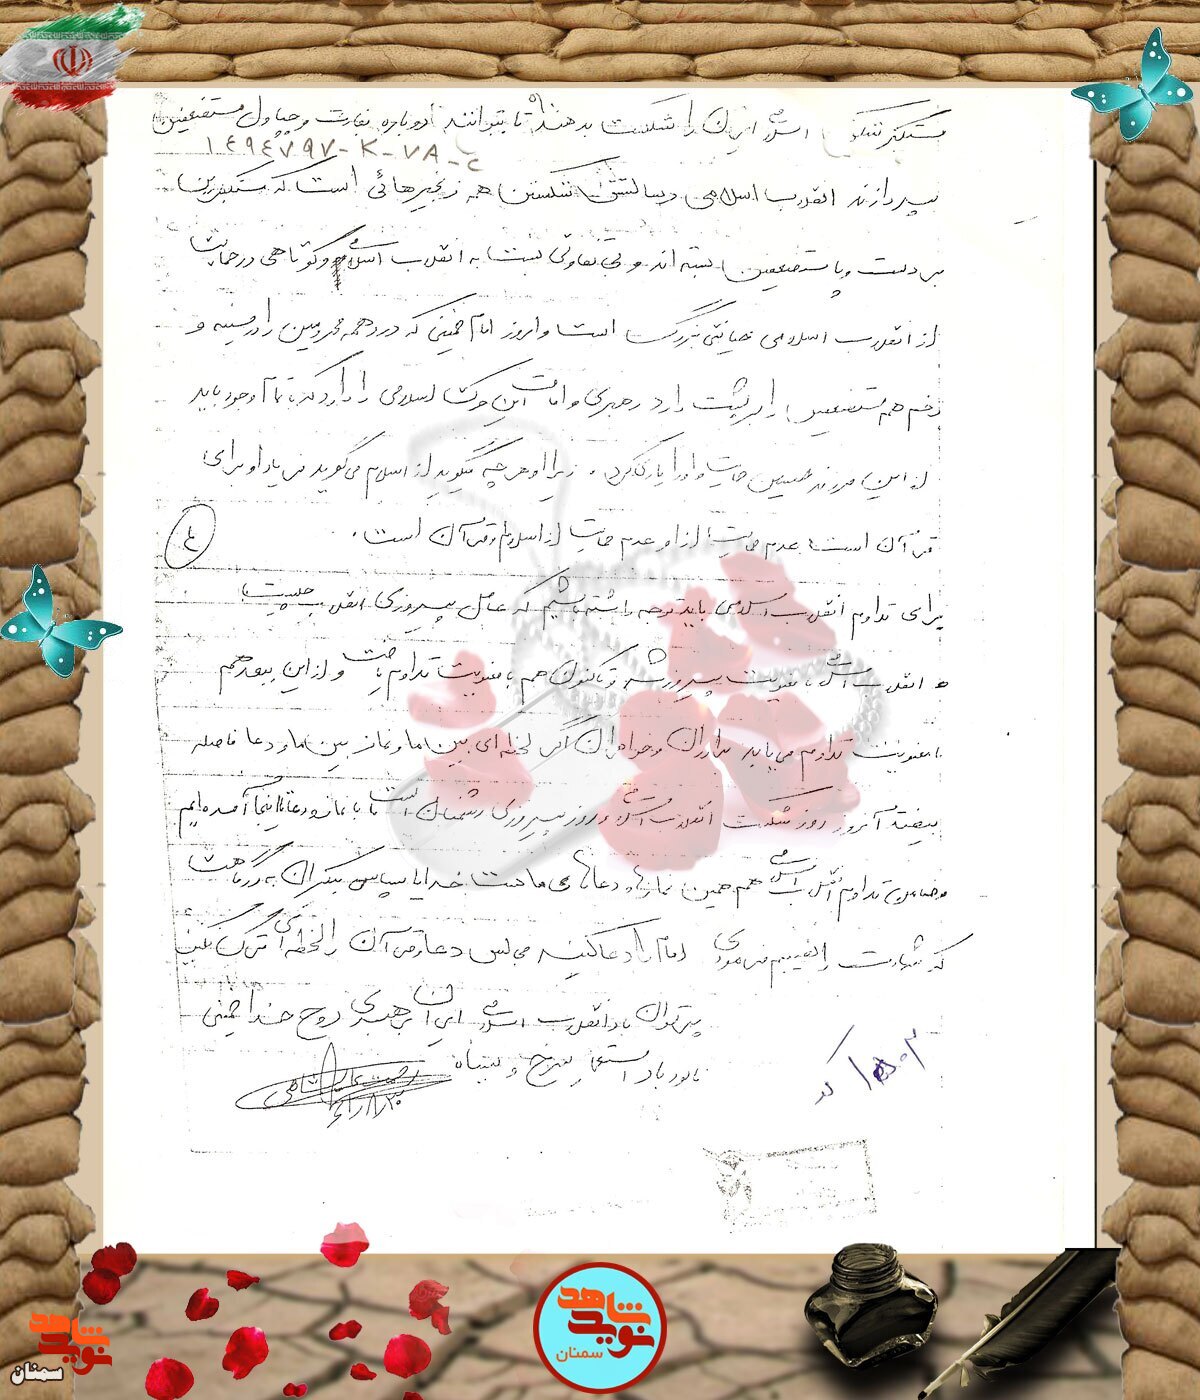 اسلامی ایران را شکست بدهند تا بتوانند دوباره بغارت و چپاول مستضعفین
۱٤۹٤۷۹۷-K-۷۸-
بپردازند انقلاب اسلامی رسالتش شکستن همه زنجیرهائی است که مستکبرین
بر دست و پا مستضعفین بسته اند و بی تفاوتی نسبت به انقلاب اسلامی و کوتاهی در حمایت
از انقلاب اسلامی خیانتی بزرگ است و امروز امام خمینی که درد همه محرومین را در سینه و
زخم همه مستضعفین را بر پشت دارد رهبری و امامت این حرکت اسلامی را دارد که با تمام وجود باید
از این فرزند حسین حمایت و او را یاری کرد. زیرا او هر چه میگوید از اسلام می گوید فریاد او برای
قرآن است عدم حمایت از او عدم حمایت از اسلام و قرآن است.
٤
برای تداوم انقلاب اسلامی باید توجه داشته باشیم که عامل پیروزی انقلاب چیست
انقلاب اسلامی با معنویت پیروز شد و تاکنون هم با معنویت تداوم یافت و از این ببعد هم
با معنویت تداوم می یابد برادران و خواهران اگر لحظه ای بین ما و نماز بین ما و دعا فاصله
بیفتد آنروز روز شکست انقلاب اسلامی و روز پیروزی دشمنان است ما با نماز و دعا تا اینجا آمده ایم
و ضامن تداوم انقلاب اسلامی هم همین نمازها و دعاهای ماست خدایا سپاس بیکران به درگاهت
که شهادت را نصیبم فرمودی امام را دعا کنید مجلس دعا و قرآن را لحظه ای ترک نکنید
پرتوان باد انقلاب اسلامی ایران برهبری روح خدا خمینی
نابود باد استعمار سرخ و سیاه
کد ۱۰۵۰۳
نوید شاهد
سمنان
نوید شاهد
سمنان